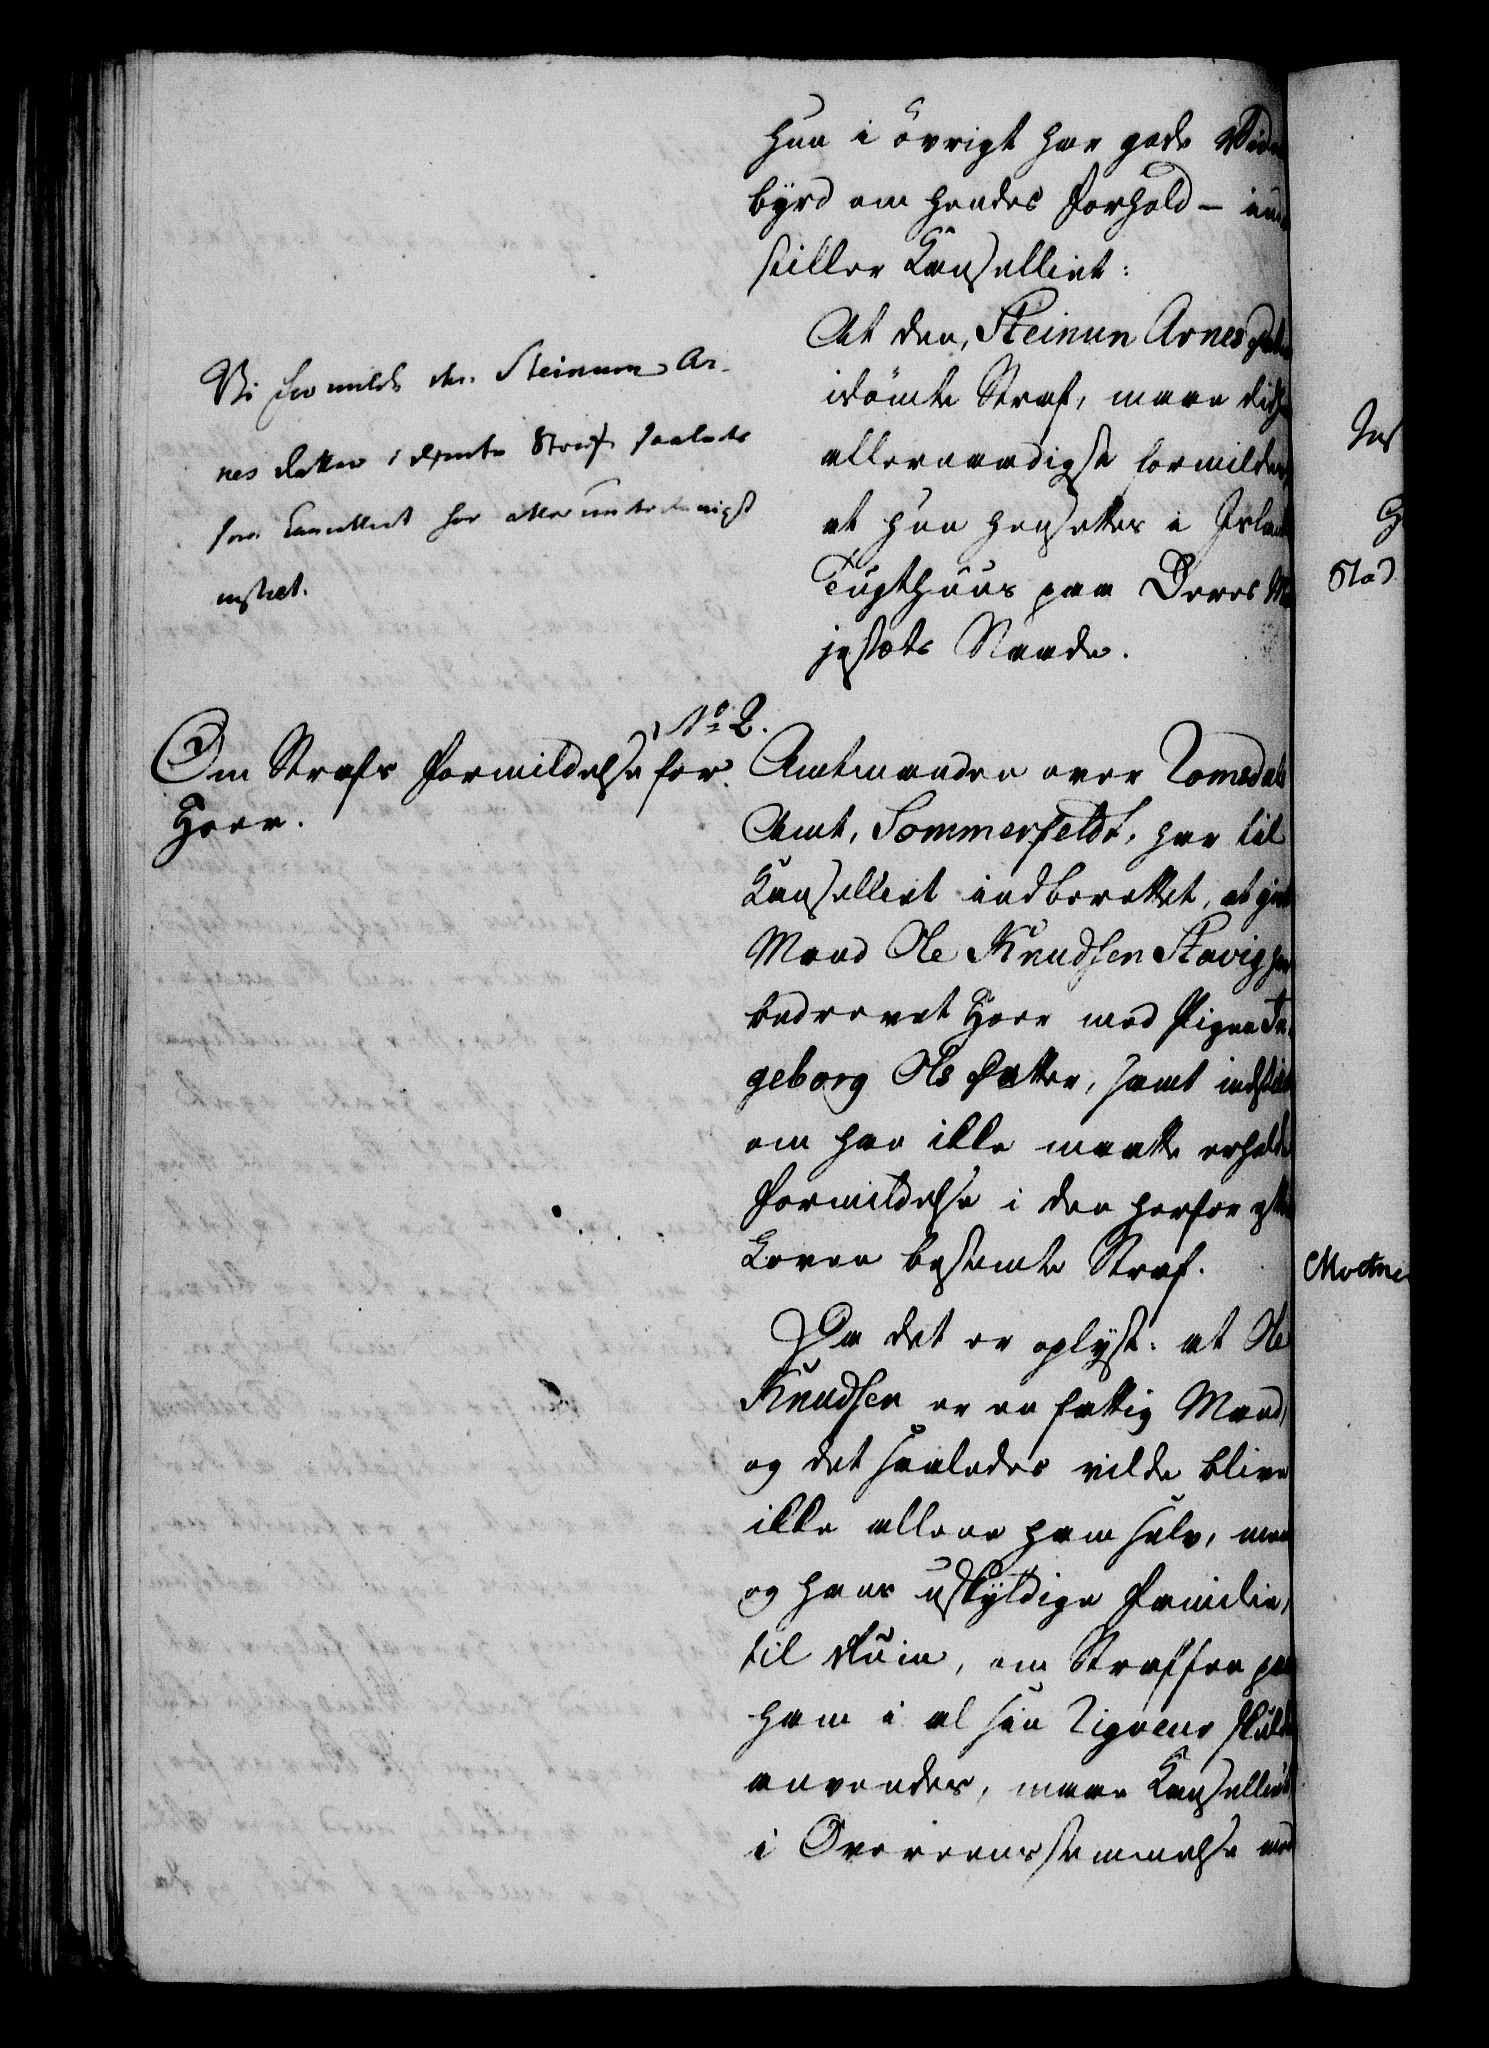 hun i övrigt har gode Vidnes
byrd om hendes Forhold – ind
stiller Kanselliet:
At den, Steinun Arnesdatter
idömte Straf, maae vidst
allernaadigst formildes,
at hun hensættes i Islands
Tugthuus paa Deres Ma
jestæts Naade.
Vi formilde den Steinun Ar-
nes datter idømte Straf saaledes
som Cancelliet har allerunderdanigst
indstilet.
No 2.
Om Strafs Formildelse for
Hoer.
Amtmanden over Romsdals
Amt, Sommerfeldt, har til
Kanselliet indberettet, at gift
Mand Ole Knudsen Stavig har
bedrevet Hoer med Pigen In,
geborg Olsdatter, samt indstillet
om han ikke maatte erholde
Formildelse i den herfor efter
Loven bestemte Straf.
Da det er oplyst: at Ole
Knudsen er en fattig Mand,
og det saaledes vilde blive
ikke allene ham selv, men
og hans uskyldige Familie,
til Ruin, om Straffen paa
ham i al sin Rigveur skulde
anvendes, maae Kanselliet
i Overeensstemmelse med